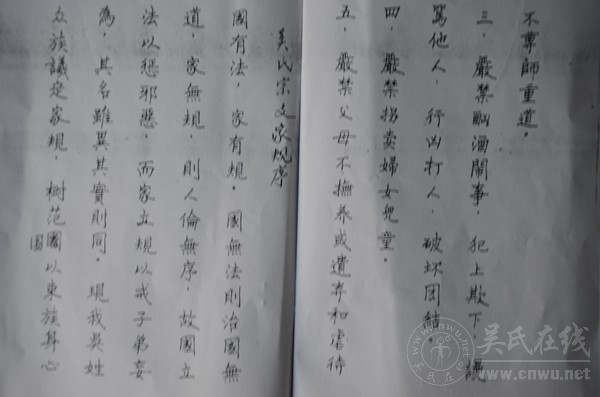 不尊師重道。
三、嚴禁酗酒鬧事，犯上欺下，謾
罵他人，行凶打人，破坏団結。
四、嚴禁拐卖婦女兒童。
五、嚴禁父母不撫养或遺弃和虐待
吴氏宗文家規序
國有法，家有規。國無法則治國無
道，家無規，則人倫無序，故國立
法以惩邪惡，而家立規以戒子弟妄
為，其名雖異其實則同。現我吴姓
众族議定家規，樹范國以束族身心
圄
吴氏在线
www.cnwu.net